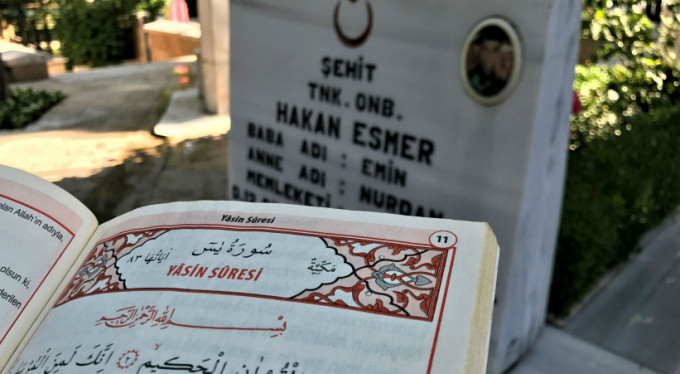 ŞEHİT
TNK. ONB.
HAKAN ESMER
BABA ADI : EMİN
ANNE ADI : NURDAN
MEMLEKETİ :
olan Allah'ın adıyla,
olsun ki,
Yâsin Sûresi
11
سُورَةُ يٰسٓ
مَكِّيَّة
اٰيَاتُهَا ٨٣
YÂSİN SÛRESİ
بِسْمِ اللّٰهِ الرَّحْمٰنِ الرَّحِيمِ
الْحَكِيمِ ﴿٢﴾ اِنَّكَ لَمِنَ